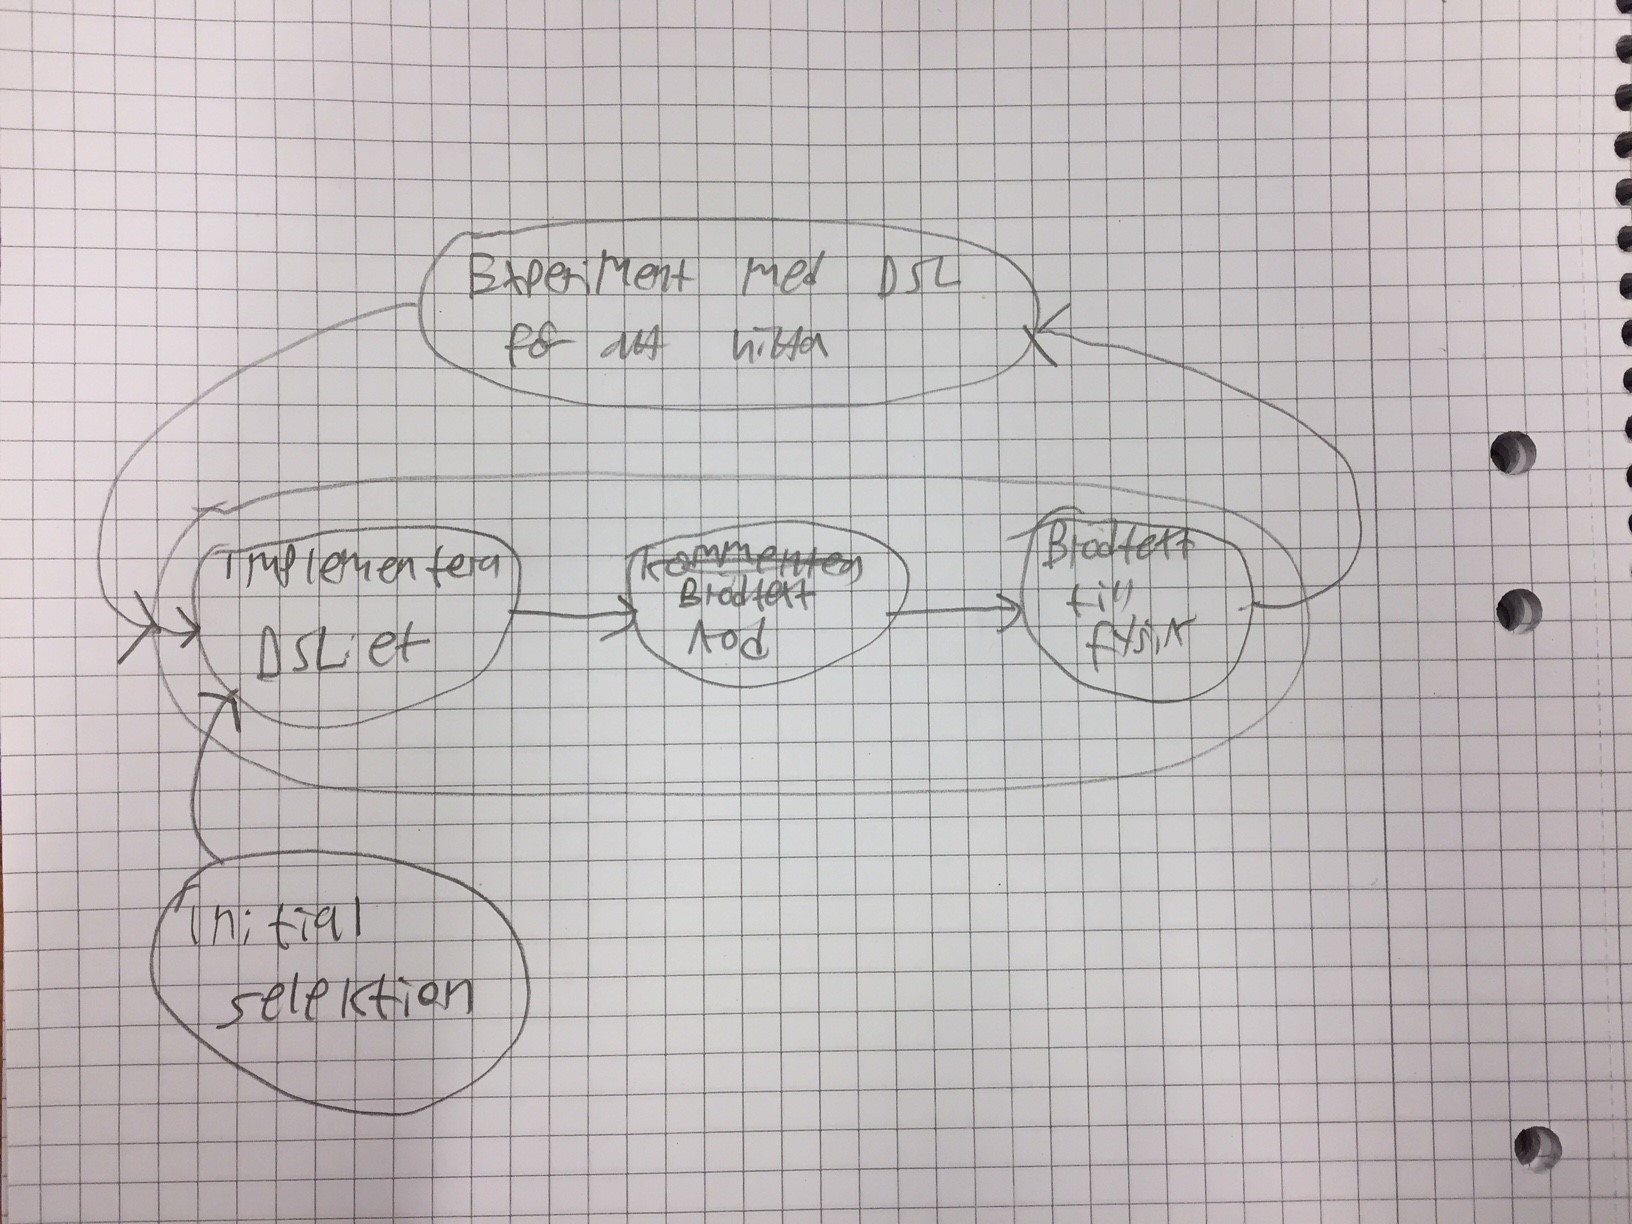 Experiment med DSL
för att hitta
Implementera
DSL:et
Kommentera
Brödtext
kod
Brödtext
till
fysik
Initial
selektion